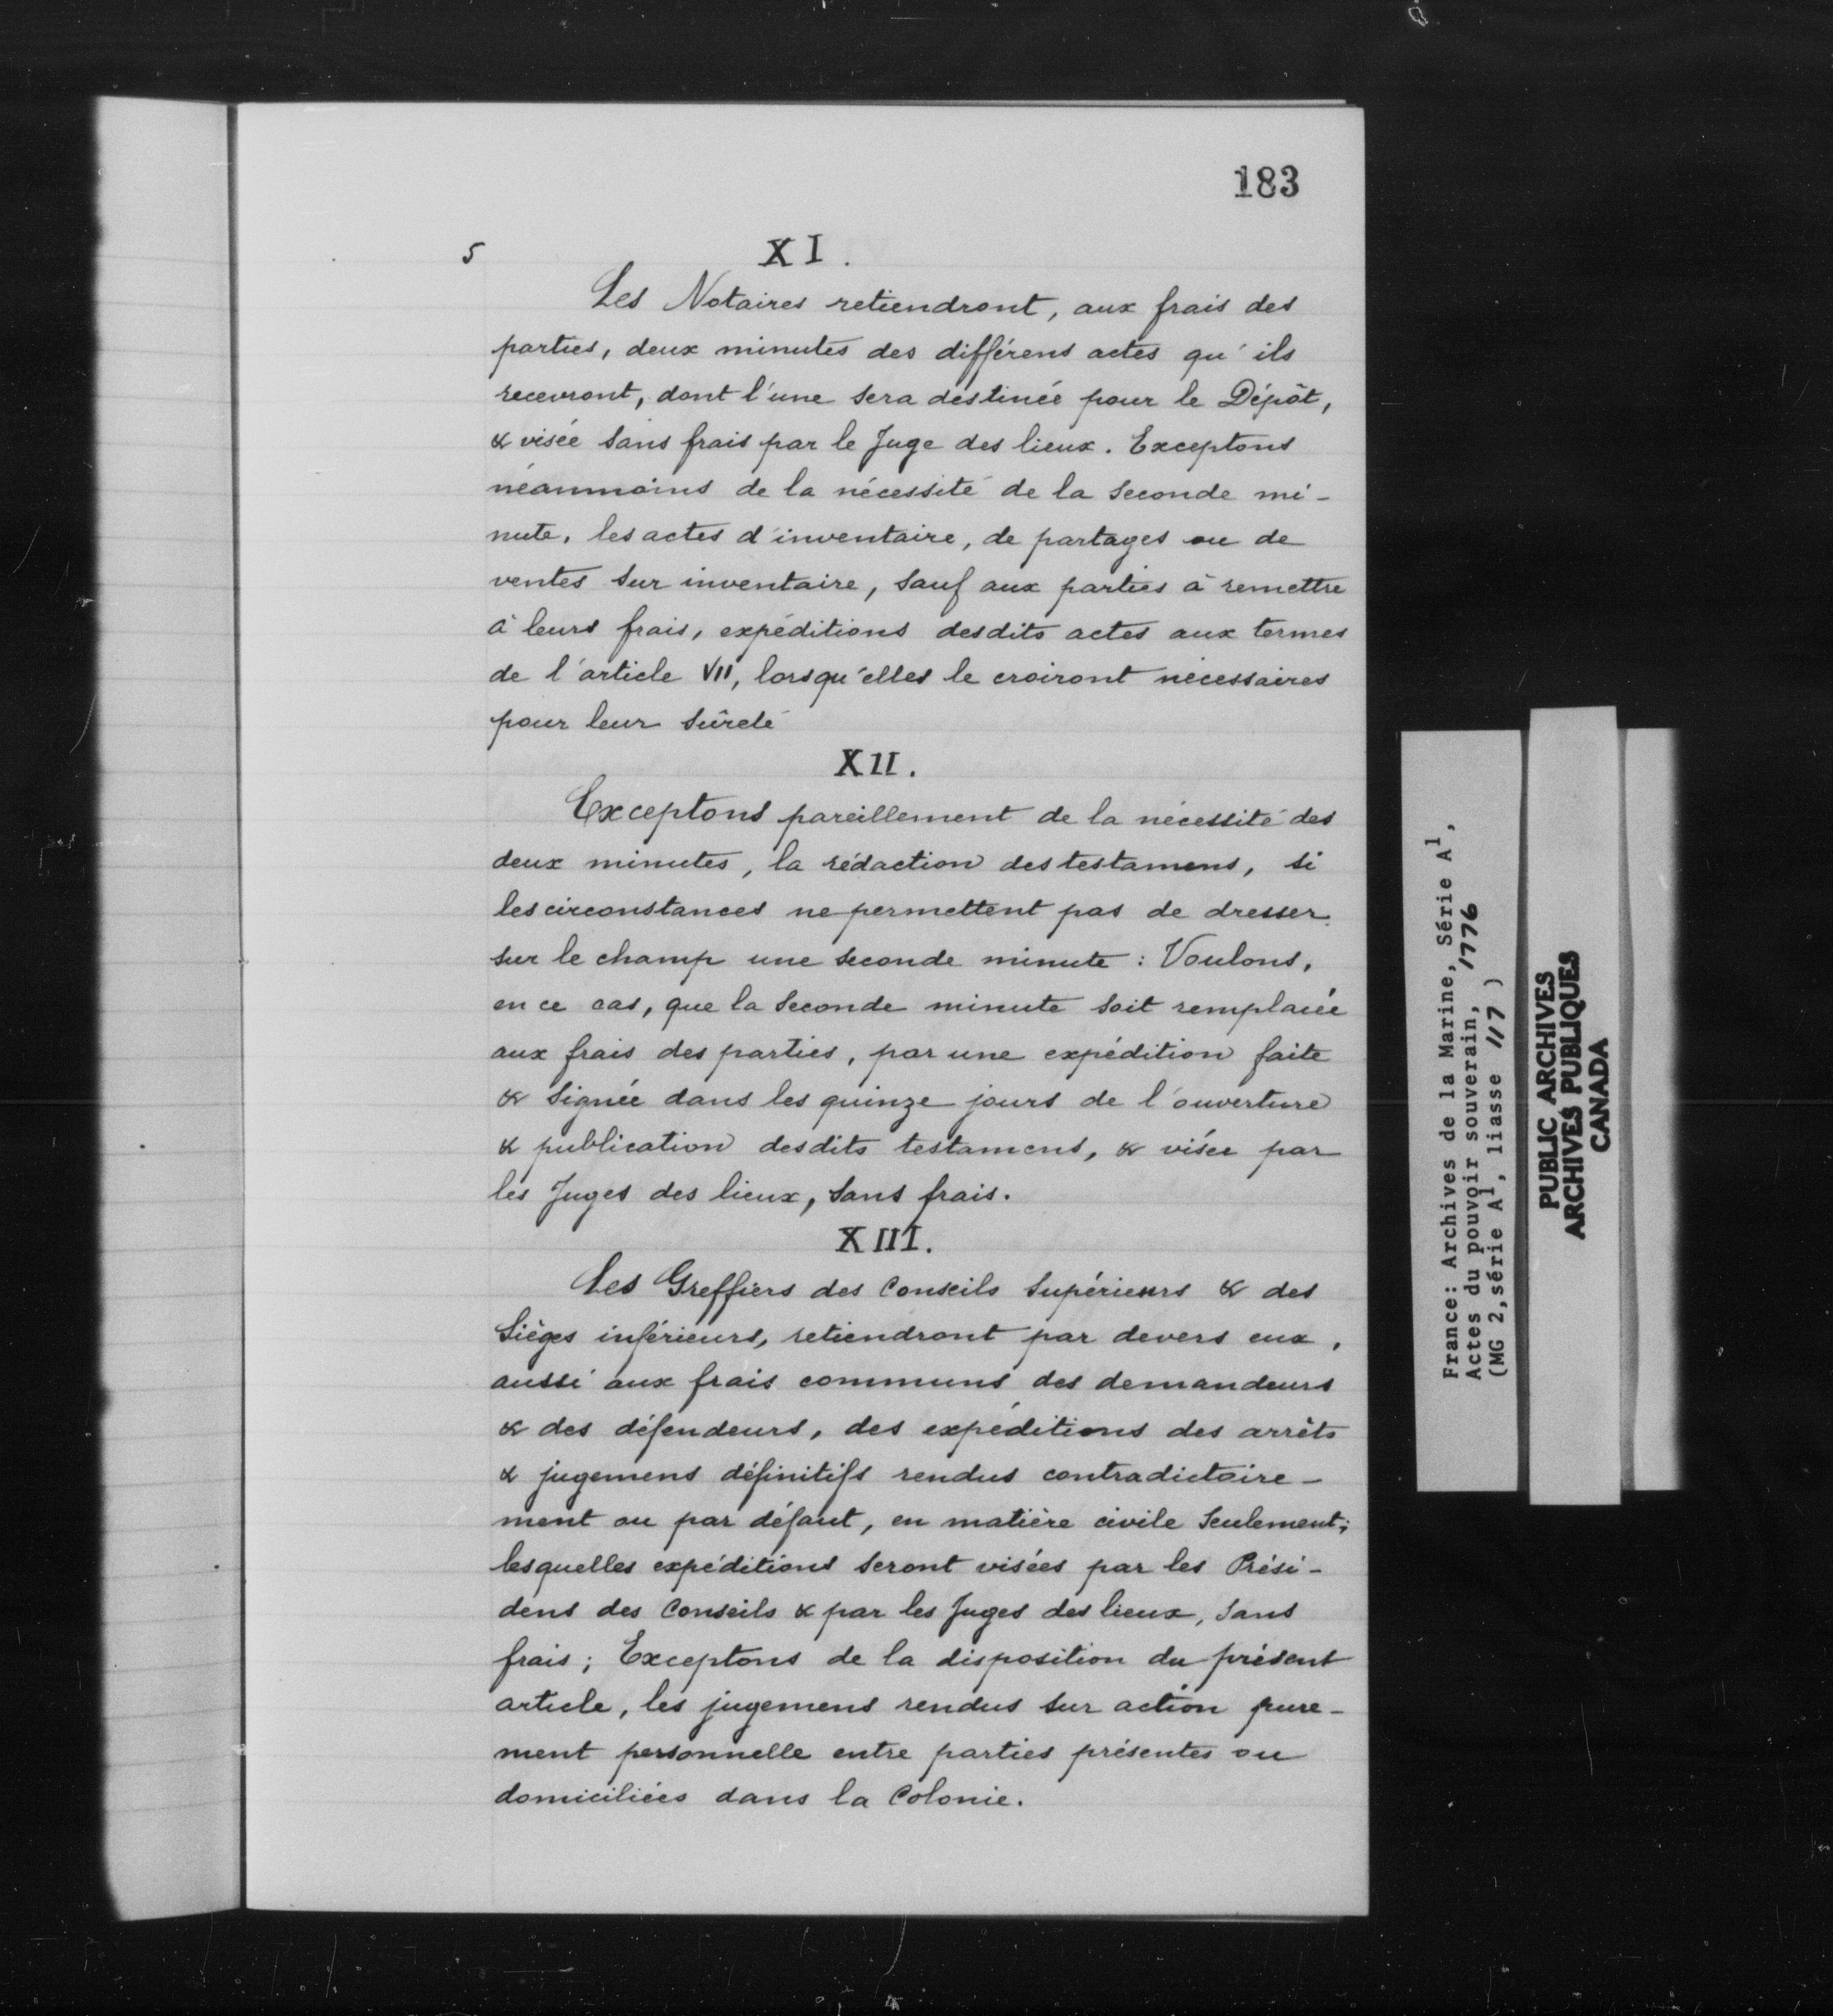 183
5
XI.
Les Notaires retiendront, aux frais des
parties, deux minutes des différens actes qu'ils
recevront, dont l'une sera destinée pour le Dépôt,
& visée sans frais par le Juge des lieux. Exceptons
néanmoins de la nécessité de la seconde mi-
nute, les actes d'inventaire, de partages ou de
ventes sur inventaire, sauf aux parties à remettre
à leurs frais, expéditions desdits actes aux termes
de l'article VII, lorsqu'elles le croiront nécessaires
pour leur sûreté
XII.
Exceptons pareillement de la nécessité des
deux minutes, la rédaction des testamens, si
les circonstances ne permettent pas de dresser
sur le champ une seconde minute : Voulons,
en ce cas, que la seconde minute soit remplacée
aux frais des parties, par une expédition faite
& signée dans les quinze jours de l'ouverture
& publication desdits testamens, & visée par
les Juges des lieux, sans frais.
XIII.
Les Greffiers des Conseils Supérieurs & des
Sièges inférieurs, retiendront par devers eux,
aussi aux frais communs des demandeurs
& des défendeurs, des expéditions des arrêts
& jugemens définitifs rendus contradictoire-
ment ou par défaut, en matière civile seulement;
lesquelles expéditions seront visées par les Prési-
dens des Conseils & par les Juges des lieux, sans
frais ; Exceptons de la disposition du présent
article, les jugemens rendus sur action pure-
ment personnelle entre parties présentes ou
domiciliées dans la Colonie.
France: Archives de la Marine, Série A1,
Actes du pouvoir souverain, 1776
(MG 2, série A1, liasse 117 )
PUBLIC ARCHIVES
ARCHIVES PUBLIQUES
CANADA